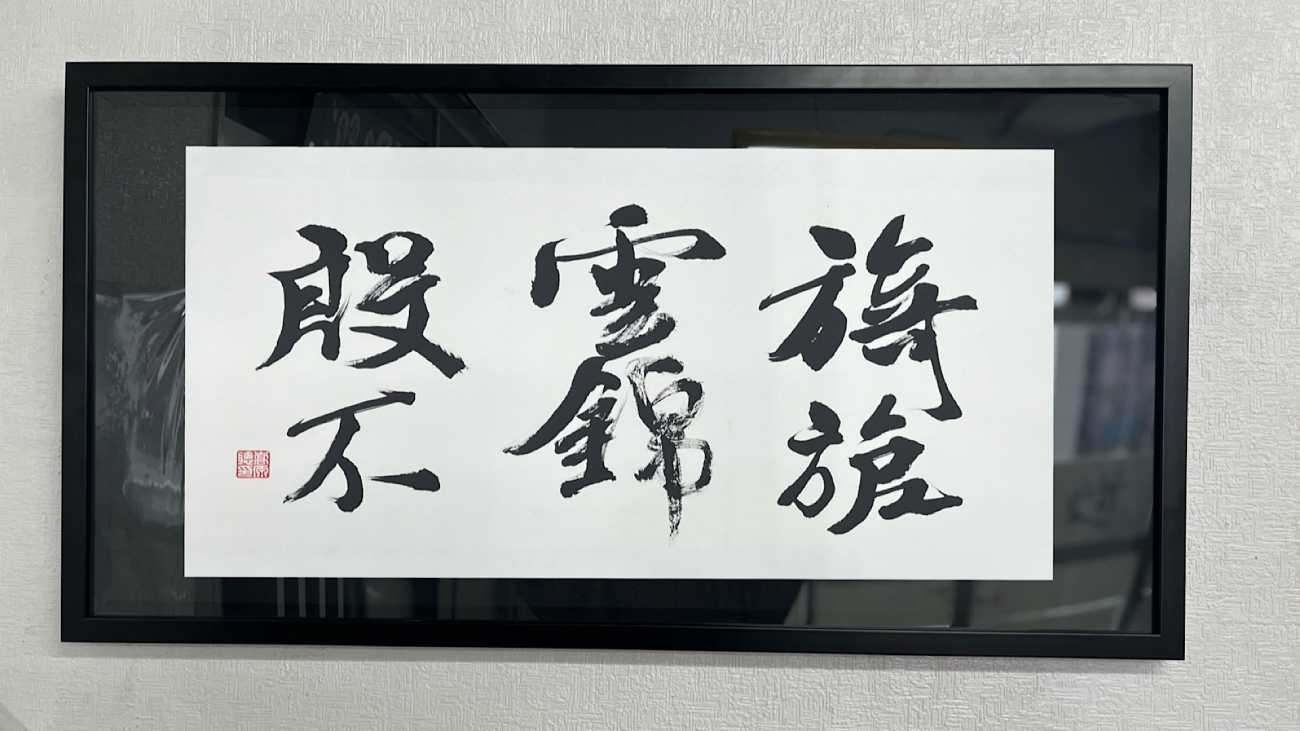 旖旎
雲錦
殷不